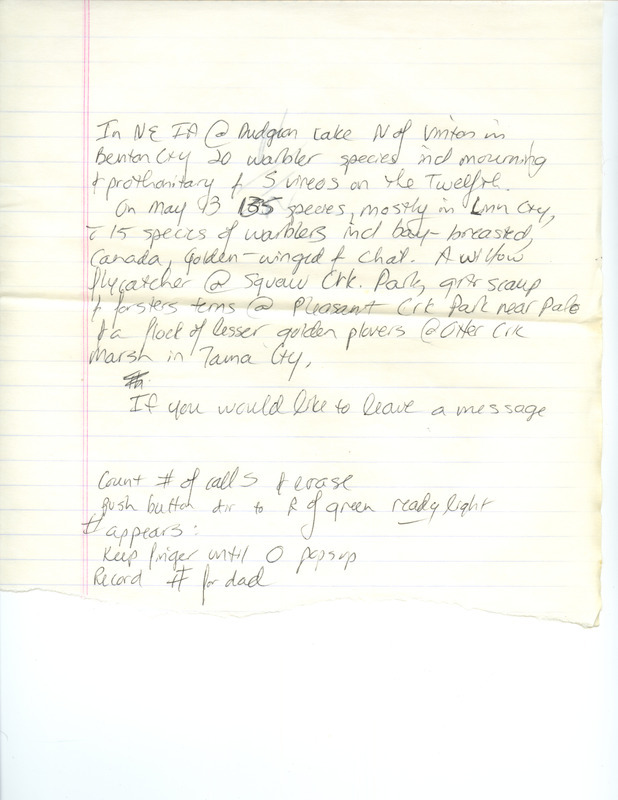 In NE IA @ Dudgeon Lake N of Vinton in
Benton Cty 20 warbler species incl mourning
& prothonitary & 5 vireos on the Twelfth.
On May 13 135 species, mostly in Linn Cty,
c̄ 15 species of warblers incl bay-breasted,
Canada, golden-winged & chat. A willow
flycatcher @ Squaw Crk. Park, grtr scaup
& forsters terns @ Pleasant Crk Park near Palo
& a flock of lesser golden plovers @ Otter Crk
Marsh in Tama Cty.
If you would like to leave a message
Count # of calls & erase
Push button dir to R of green ready light
# appears:
Keep finger until 0 pops up
Record # for dad